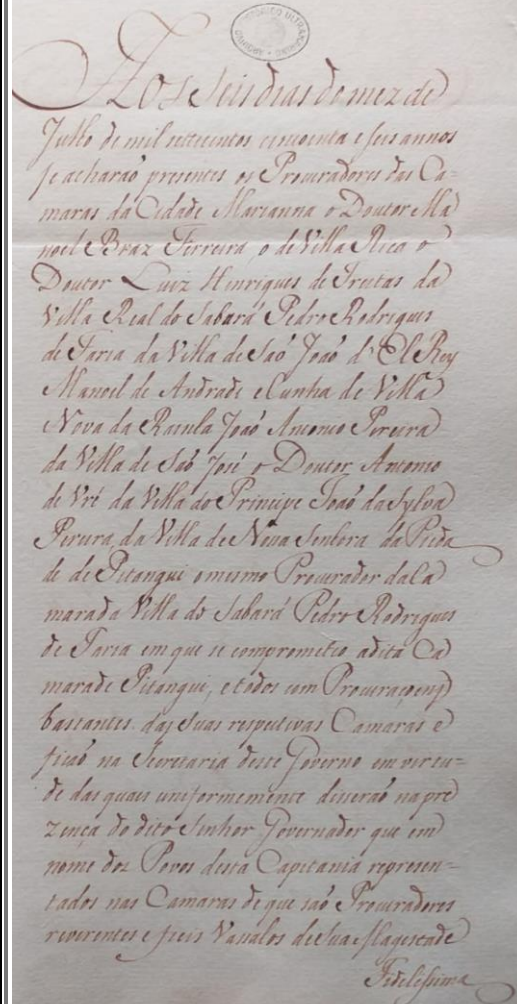 ARQUIVO HISTORICO ULTRAMARINO
Aos seis dias do mez de
Julho de mil settecentos cincoenta e seis annos
se acharaõ presentes os Procuradores das Ca=
maras da Cidade Marianna o Doutor Ma
noel Braz Ferreira o de Villa Rica o
Doutor Luiz Henriques de Freitas da
Villa Real do Sabará Pedro Rodrigues
de Faria da Villa de Saõ Joaõ d'El Rey
Manoel de Andrade e Cunha de Villa
Nova da Rainha Joaõ Antonio Pereira
da Villa de Saõ José o Doutor Antonio
de da Villa do Principe Joaõ da Sylva
Pereira, da Villa de Nossa Senhora da Pieda
de de Pitangui o mesmo Procurador da Ca
mara da Villa do Sabará Pedro Rodrigues
de Faria em que se comprometeo a dita Ca
mara de Pitangui, e todos com Procuraçoens
bastantes das suas respetivas Camaras e
ficaõ na Secretaria deste Governo em vertu=
de das quais uneformemente disseraõ na pre
zença do dito Senhor Governador que em
nome dos Povos desta Capitania represen=
tados nas Camaras de que saõ Procuradores
reverentes e fieis Vassalos de Sua Magestade
Fidelissima